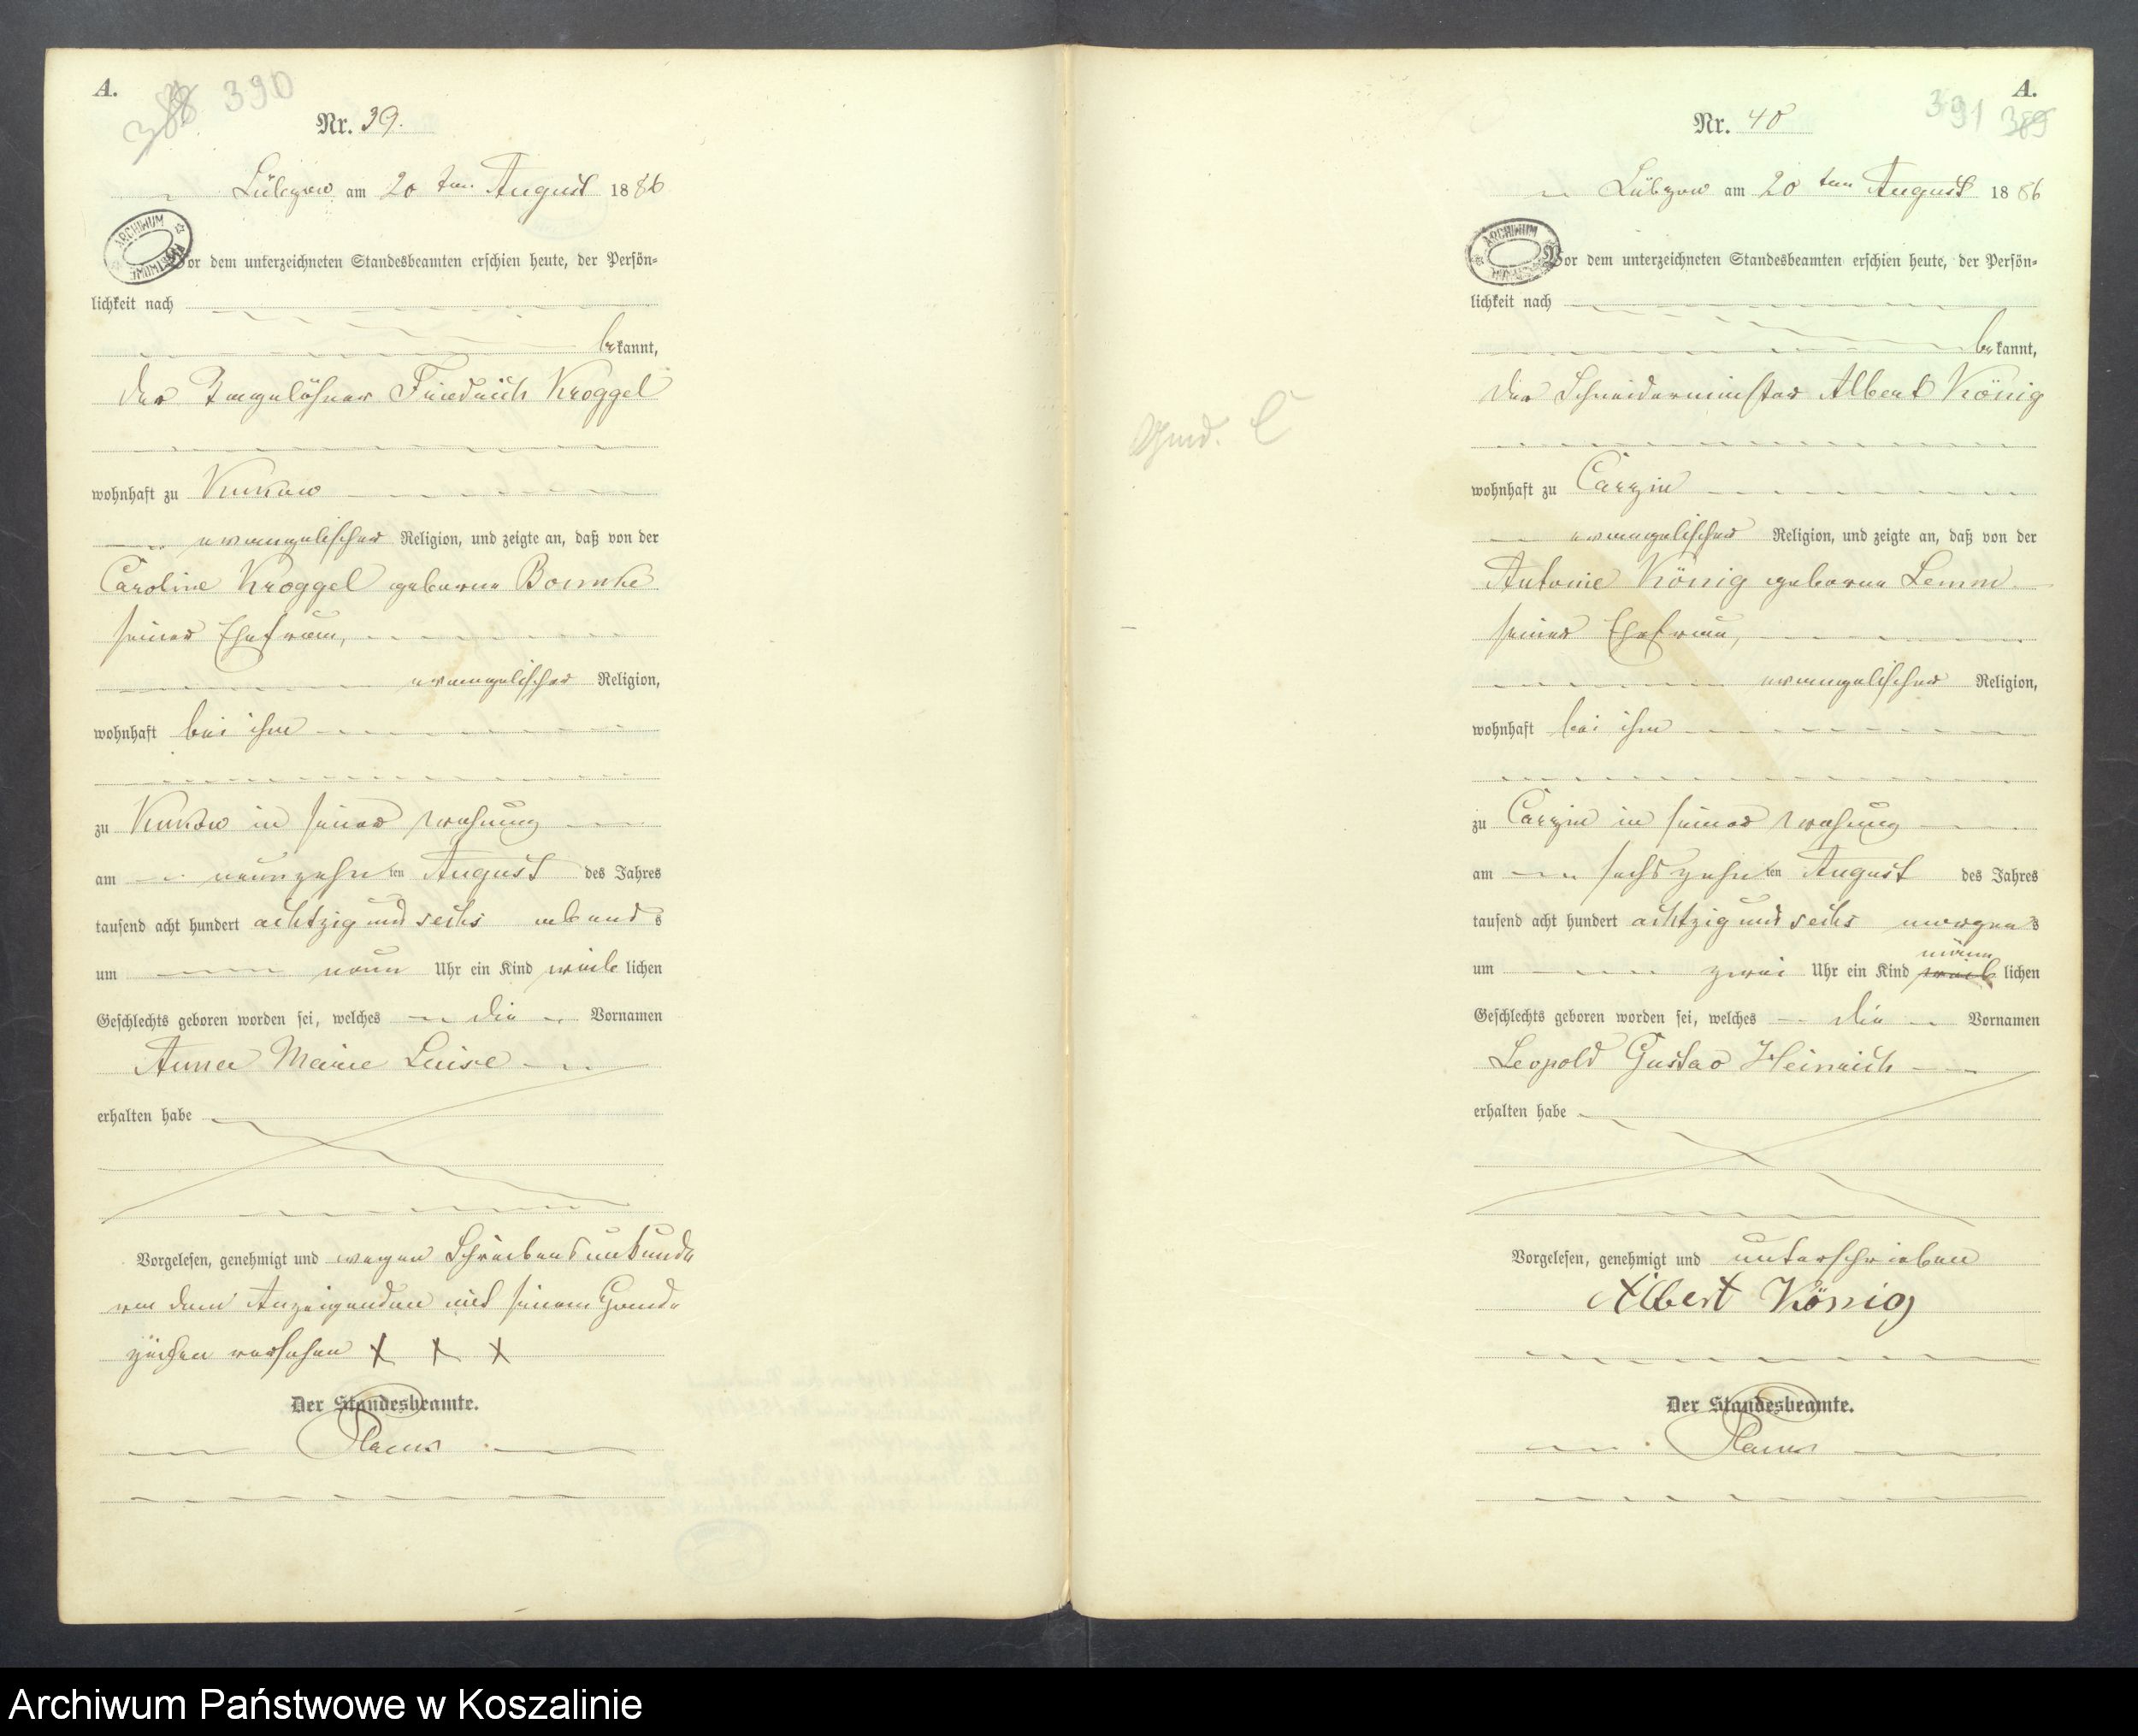 A.
388 390
Nr. 39.
Lübzow am 20 ten August 1886
ARCHIWUM
Vor dem unterzeichneten Standesbeamten erschien heute, der Persön-
lichkeit nach
bekannt,
der Tagelöhner Friedrich Kroggel
wohnhaft zu Kukow
evangelischer Religion, und zeigte an, daß von der
Caroline Kroggel geborne
seiner Ehefrau,
evangelischer Religion,
wohnhaft bei ihm
zu Kukow in seiner Wohnung
am neunzehn ten August des Jahres
tausend acht hundert achtzig und sechs abends
um neun Uhr ein Kind weiblichen
Geschlechts geboren worden sei, welches die Vornamen
Anna Marie Luise
erhalten habe
Vorgelesen, genehmigt und wegen Schreibensunkunde
von dem Anzeigenden mit seinem Hand-
zeichen versehen X X X
Der Standesbeamte.
A.
391 389
Nr. 40
Lübzow am 20 ten August 1886
ARCHIWUM
Vor dem unterzeichneten Standesbeamten erschien heute, der Persön-
lichkeit nach
bekannt,
der Schneidermeister Albert König
wohnhaft zu Carzin
evangelischer Religion, und zeigte an, daß von der
Antonie König geborne Lemm
seiner Ehefrau,
evangelischer Religion,
wohnhaft bei ihm
zu Carzin in seiner Wohnung
am sechszehn ten August des Jahres
tausend acht hundert achtzig und sechs morgens
männ
um zwei Uhr ein Kind weiblichen
Geschlechts geboren worden sei, welches die Vornamen
Leopold Gustav Heinrich
erhalten habe
Vorgelesen, genehmigt und unterschrieben
Albert König
Der Standesbeamte.
Archiwum Państwowe w Koszalinie